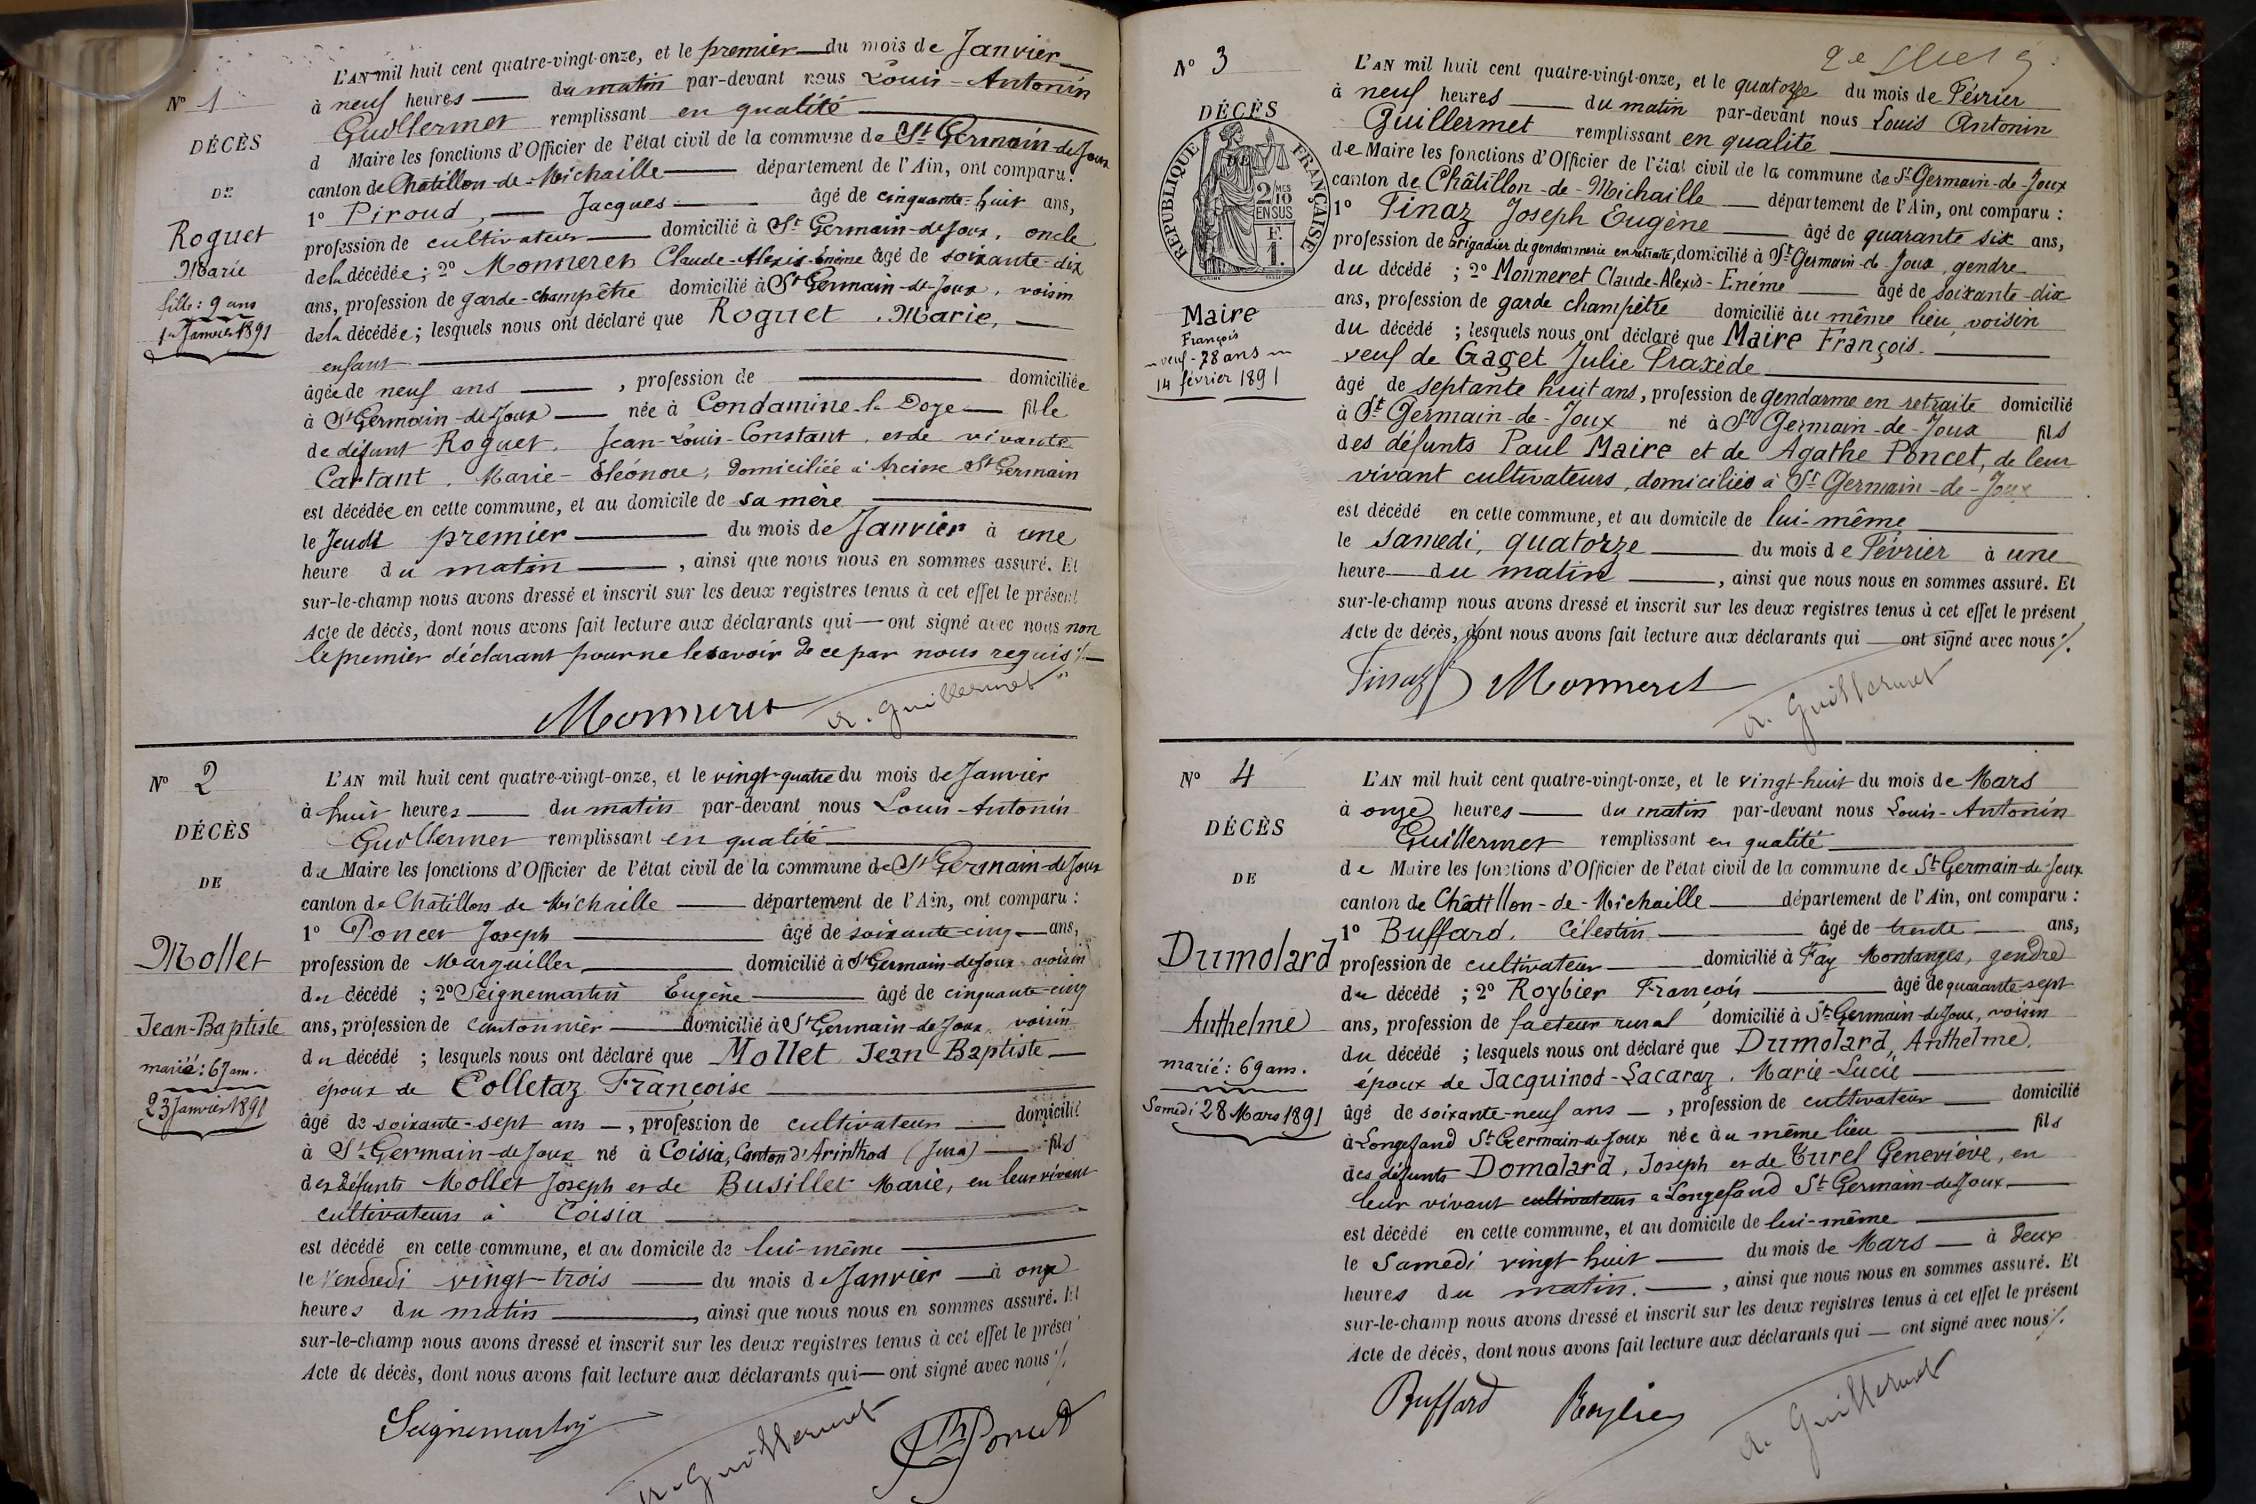 L'AN mil huit cent quatre-vingt-onze, et le premier du mois de Janvier
à neuf heures du matin par-devant nous Louis-Antonin
Guillermet remplissant en qualité
d Maire les fonctions d'Officier de l'état civil de la commune de St Germain-de-Joux
canton de Châtillon-de-Michaille département de l'Ain, ont comparu :
1° Piroud, Jacques âgé de cinquante-huit ans,
profession de cultivateur domicilié à St Germain-de-Joux, oncle
de la décédée ; 2° Monneret Claude-Alexis-Enème âgé de soixante-dix
ans, profession de garde-champêtre domicilié à St Germain-de-Joux, voisin
de la décédée ; lesquels nous ont déclaré que Roguet, Marie,
enfant
âgée de neuf ans, profession de domiciliée
à St Germain-de-Joux née à Condamine-la-Doye fille
de défunt Roguet, Jean-Louis-Constant, et de vivante
Cartant, Marie-Eléonore, domiciliée à St Germain
est décédée en cette commune, et au domicile de sa mère
le Jeudi premier du mois de Janvier à une
heure du matin, ainsi que nous nous en sommes assuré. Et
sur-le-champ nous avons dressé et inscrit sur les deux registres tenus à cet effet le présent
Acte de décès, dont nous avons fait lecture aux déclarants qui ont signé avec nous non
le premier déclarant pour ne le savoir de ce par nous requis ./.
Monneret A. Guillermet
N° 1
DÉCÈS
DE
Roguet
Marie
fille : 9 ans
1er Janvier 1891
N° 2
DÉCÈS
DE
Mollet
Jean-Baptiste
marié : 67 ans.
23 Janvier 1891
L'AN mil huit cent quatre-vingt-onze, et le vingt-quatre du mois de Janvier
à huit heures du matin par-devant nous Louis-Antonin
Guillermet remplissant en qualité
de Maire les fonctions d'Officier de l'état civil de la commune de St Germain-de-Joux
canton de Châtillon de Michaille département de l'Ain, ont comparu :
1° Poncet Joseph âgé de soixante-cinq ans,
profession de Marguiller domicilié à St Germain-de-Joux voisin
du décédé ; 2° Seignemartin Eugène âgé de cinquante-cinq
ans, profession de cantonnier domicilié à St Germain-de-Joux, voisin
du décédé ; lesquels nous ont déclaré que Mollet Jean-Baptiste
époux de Colletaz Françoise
âgé de soixante-sept ans, profession de cultivateur domicilié
à St Germain-de-Joux né à Coisia, Canton d'Arinthod (Jura) fils
des défunts Mollet Joseph et de Busillet Marie, en leur vivant
cultivateurs à Coisia
est décédé en cette commune, et au domicile de lui-même
le Vendredi vingt-trois du mois de Janvier à onze
heures du matin, ainsi que nous nous en sommes assuré. Et
sur-le-champ nous avons dressé et inscrit sur les deux registres tenus à cet effet le présent
Acte de décès, dont nous avons fait lecture aux déclarants qui ont signé avec nous ./.
Seignemartin A. Guillermet Poncet
N° 3
DÉCÈS
DE
RÉPUBLIQUE FRANÇAISE
2 MES
10
EN SUS
F.
1.
Maire
François
veuf - 78 ans
14 février 1891
L'AN mil huit cent quatre-vingt-onze, et le quatorze du mois de Février
à neuf heures du matin par-devant nous Louis Antonin
Guillermet remplissant en qualité
de Maire les fonctions d'Officier de l'état civil de la commune de St Germain-de-Joux
canton de Châtillon-de-Michaille département de l'Ain, ont comparu :
1° Tinaz Joseph Eugène âgé de quarante six ans,
profession de brigadier de gendarmerie en retraite, domicilié à St Germain-de-Joux, gendre
du décédé ; 2° Monneret Claude-Alexis-Enéme âgé de soixante-dix
ans, profession de garde champêtre domicilié au même lieu, voisin
du décédé ; lesquels nous ont déclaré que Maire François.
veuf de Gaget Julie Praxède
âgé de septante huit ans, profession de gendarme en retraite domicilié
à St Germain-de-Joux né à St Germain-de-Joux fils
des défunts Paul Maire et de Agathe Poncet, de leur
vivant cultivateurs, domiciliés à St Germain-de-Joux
est décédé en cette commune, et au domicile de lui-même
le samedi, quatorze du mois de Février à une
heure du matin, ainsi que nous nous en sommes assuré. Et
sur-le-champ nous avons dressé et inscrit sur les deux registres tenus à cet effet le présent
Acte de décès, dont nous avons fait lecture aux déclarants qui ont signé avec nous ./.
Tinaz Monneret A. Guillermet
N° 4
DÉCÈS
DE
Dumolard
Anthelme
marié : 69 ans.
Samedi 28 Mars 1891
L'AN mil huit cent quatre-vingt-onze, et le vingt-huit du mois de Mars
à onze heures du matin par-devant nous Louis-Antonin
Guillermet remplissant en qualité
de Maire les fonctions d'Officier de l'état civil de la commune de St Germain-de-Joux
canton de Châtillon-de-Michaille département de l'Ain, ont comparu :
1° Buffard, Célestin âgé de trente ans,
profession de cultivateur domicilié à Fay Montanges, gendre
du décédé ; 2° Roybier François âgé de quarante-sept
ans, profession de facteur rural domicilié à St Germain-de-Joux, voisin
du décédé ; lesquels nous ont déclaré que Dumolard, Anthelme,
époux de Jacquinod-Lacaraz, Marie-Lucie
âgé de soixante-neuf ans, profession de cultivateur domicilié
à Longefand St Germain-de-Joux née au même lieu fils
des défunts Domolard, Joseph et de Turel Geneviève, en
leur vivant cultivateurs à Longefand St Germain-de-Joux
est décédé en cette commune, et au domicile de lui-même
le Samedi vingt huit du mois de Mars à deux
heures du matin., ainsi que nous nous en sommes assuré. Et
sur-le-champ nous avons dressé et inscrit sur les deux registres tenus à cet effet le présent
Acte de décès, dont nous avons fait lecture aux déclarants qui ont signé avec nous ./.
Buffard Roybier A. Guillermet